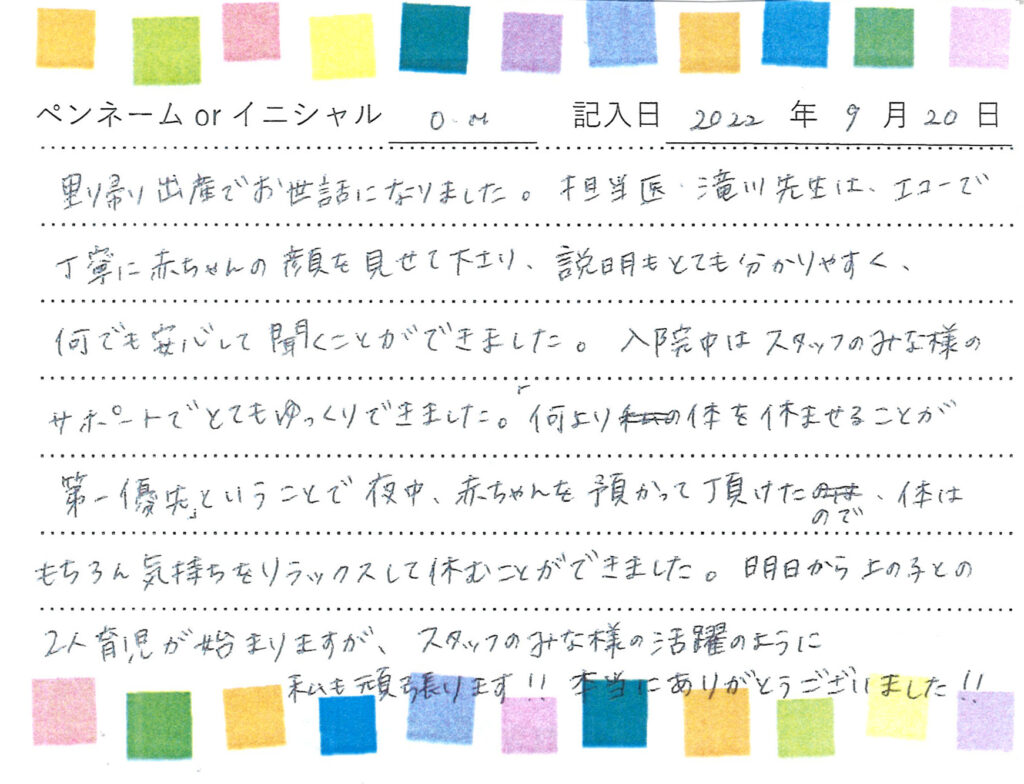 ペンネーム or イニシャル O.M 記入日 2022 年 9 月 20 日
里り帰り出産でお世話になりました。担当医・滝川先生は、エコーで
丁寧に赤ちゃんの顔を見せて下さり、説明もとても分かりやすく、
何でも安心して聞くことができました。入院中はスタッフのみな様の
サポートでとてもゆっくりできました。「何より体を休ませることが
第一優先」ということで夜中、赤ちゃんを預かって頂けたので、体は
もちろん気持ちをリラックスして休むことができました。明日から上の子との
2人育児が始まりますが、スタッフのみな様の活躍のように
私も頑張ります!! 本当にありがとうございました!!